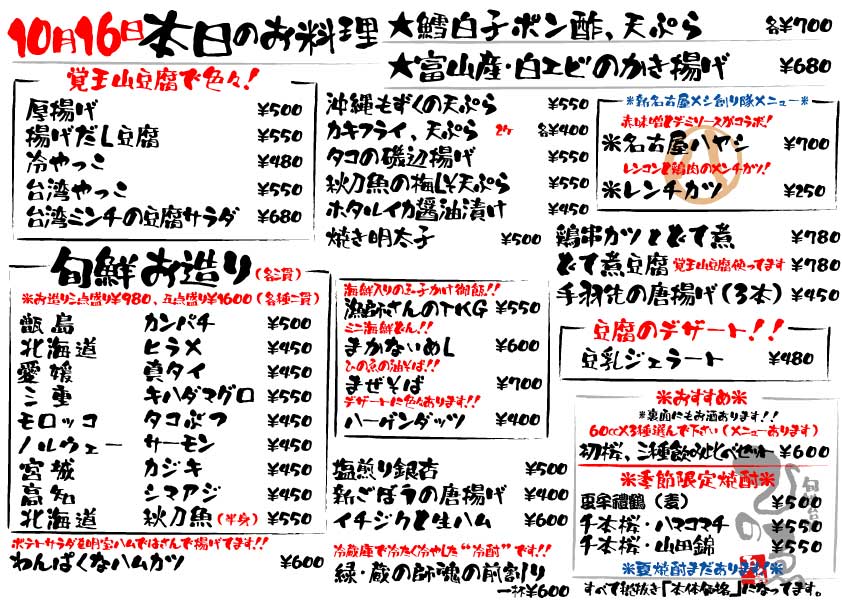 10月16日 本日のお料理
★鱈白子ポン酢、天ぷら 各¥700
★富山産・白エビのかき揚げ ¥680
覚王山豆腐で色々!
厚揚げ ¥500
揚げだし豆腐 ¥550
冷やっこ ¥480
台湾やっこ ¥550
台湾ミンチの豆腐サラダ ¥680
沖縄もずくの天ぷら ¥550
カキフライ、天ぷら 2ケ 各¥400
タコの磯辺揚げ ¥550
秋刀魚の梅しそ天ぷら ¥550
ホタルイカ醤油漬け ¥450
焼き明太子 ¥500
※新名古屋メシ創り隊メニュー※
赤味噌とデミソースがコラボ!
※名古屋ハヤシ ¥700
レンコンと鶏肉のメンチカツ!
※レンチカツ ¥250
鶏串カツとどて煮 ¥780
どて煮豆腐 覚王山豆腐使ってます ¥780
手羽先の唐揚げ(3本) ¥450
旬鮮お造り(各二貫)
※お造り三点盛り¥980、五点盛り¥1600(各種二貫)
甑島 カンパチ ¥500
北海道 ヒラメ ¥450
愛媛 真タイ ¥450
三重 キハダマグロ ¥550
モロッコ タコぶつ ¥450
ノルウェー サーモン ¥450
宮城 カジキ ¥450
高知 シマアジ ¥450
北海道 秋刀魚(半身) ¥550
ポテトサラダを明宝ハムではさんで揚げてます!!
わんぱくなハムカツ ¥600
海鮮入りの玉子かけ御飯!!
漁師さんのTKG ¥550
ミニ海鮮どん!!
まかないめし ¥600
ひの魚の油そば!!
まぜそば ¥700
デザートに色々あります!!
ハーゲンダッツ ¥400
塩煎り銀杏 ¥500
新ごぼうの唐揚げ ¥400
イチジクと生ハム ¥600
冷蔵庫で冷たく冷やした“冷酎”です!!
緑・蔵の師魂の前割り
一杯¥600
豆腐のデザート!!
豆乳ジェラート ¥480
※おすすめ※
※裏面にもお酒あります!!
60cc×3種選んで下さい(メニューあります)
初桜、三種飲みくらべセット ¥600
※季節限定焼酎※
兼八禮鶴(麦) ¥500
千本桜・ハマコマチ ¥550
千本桜・山田錦 ¥550
※夏焼酎まだあります※
すべて税抜き「本体価格」になってます。